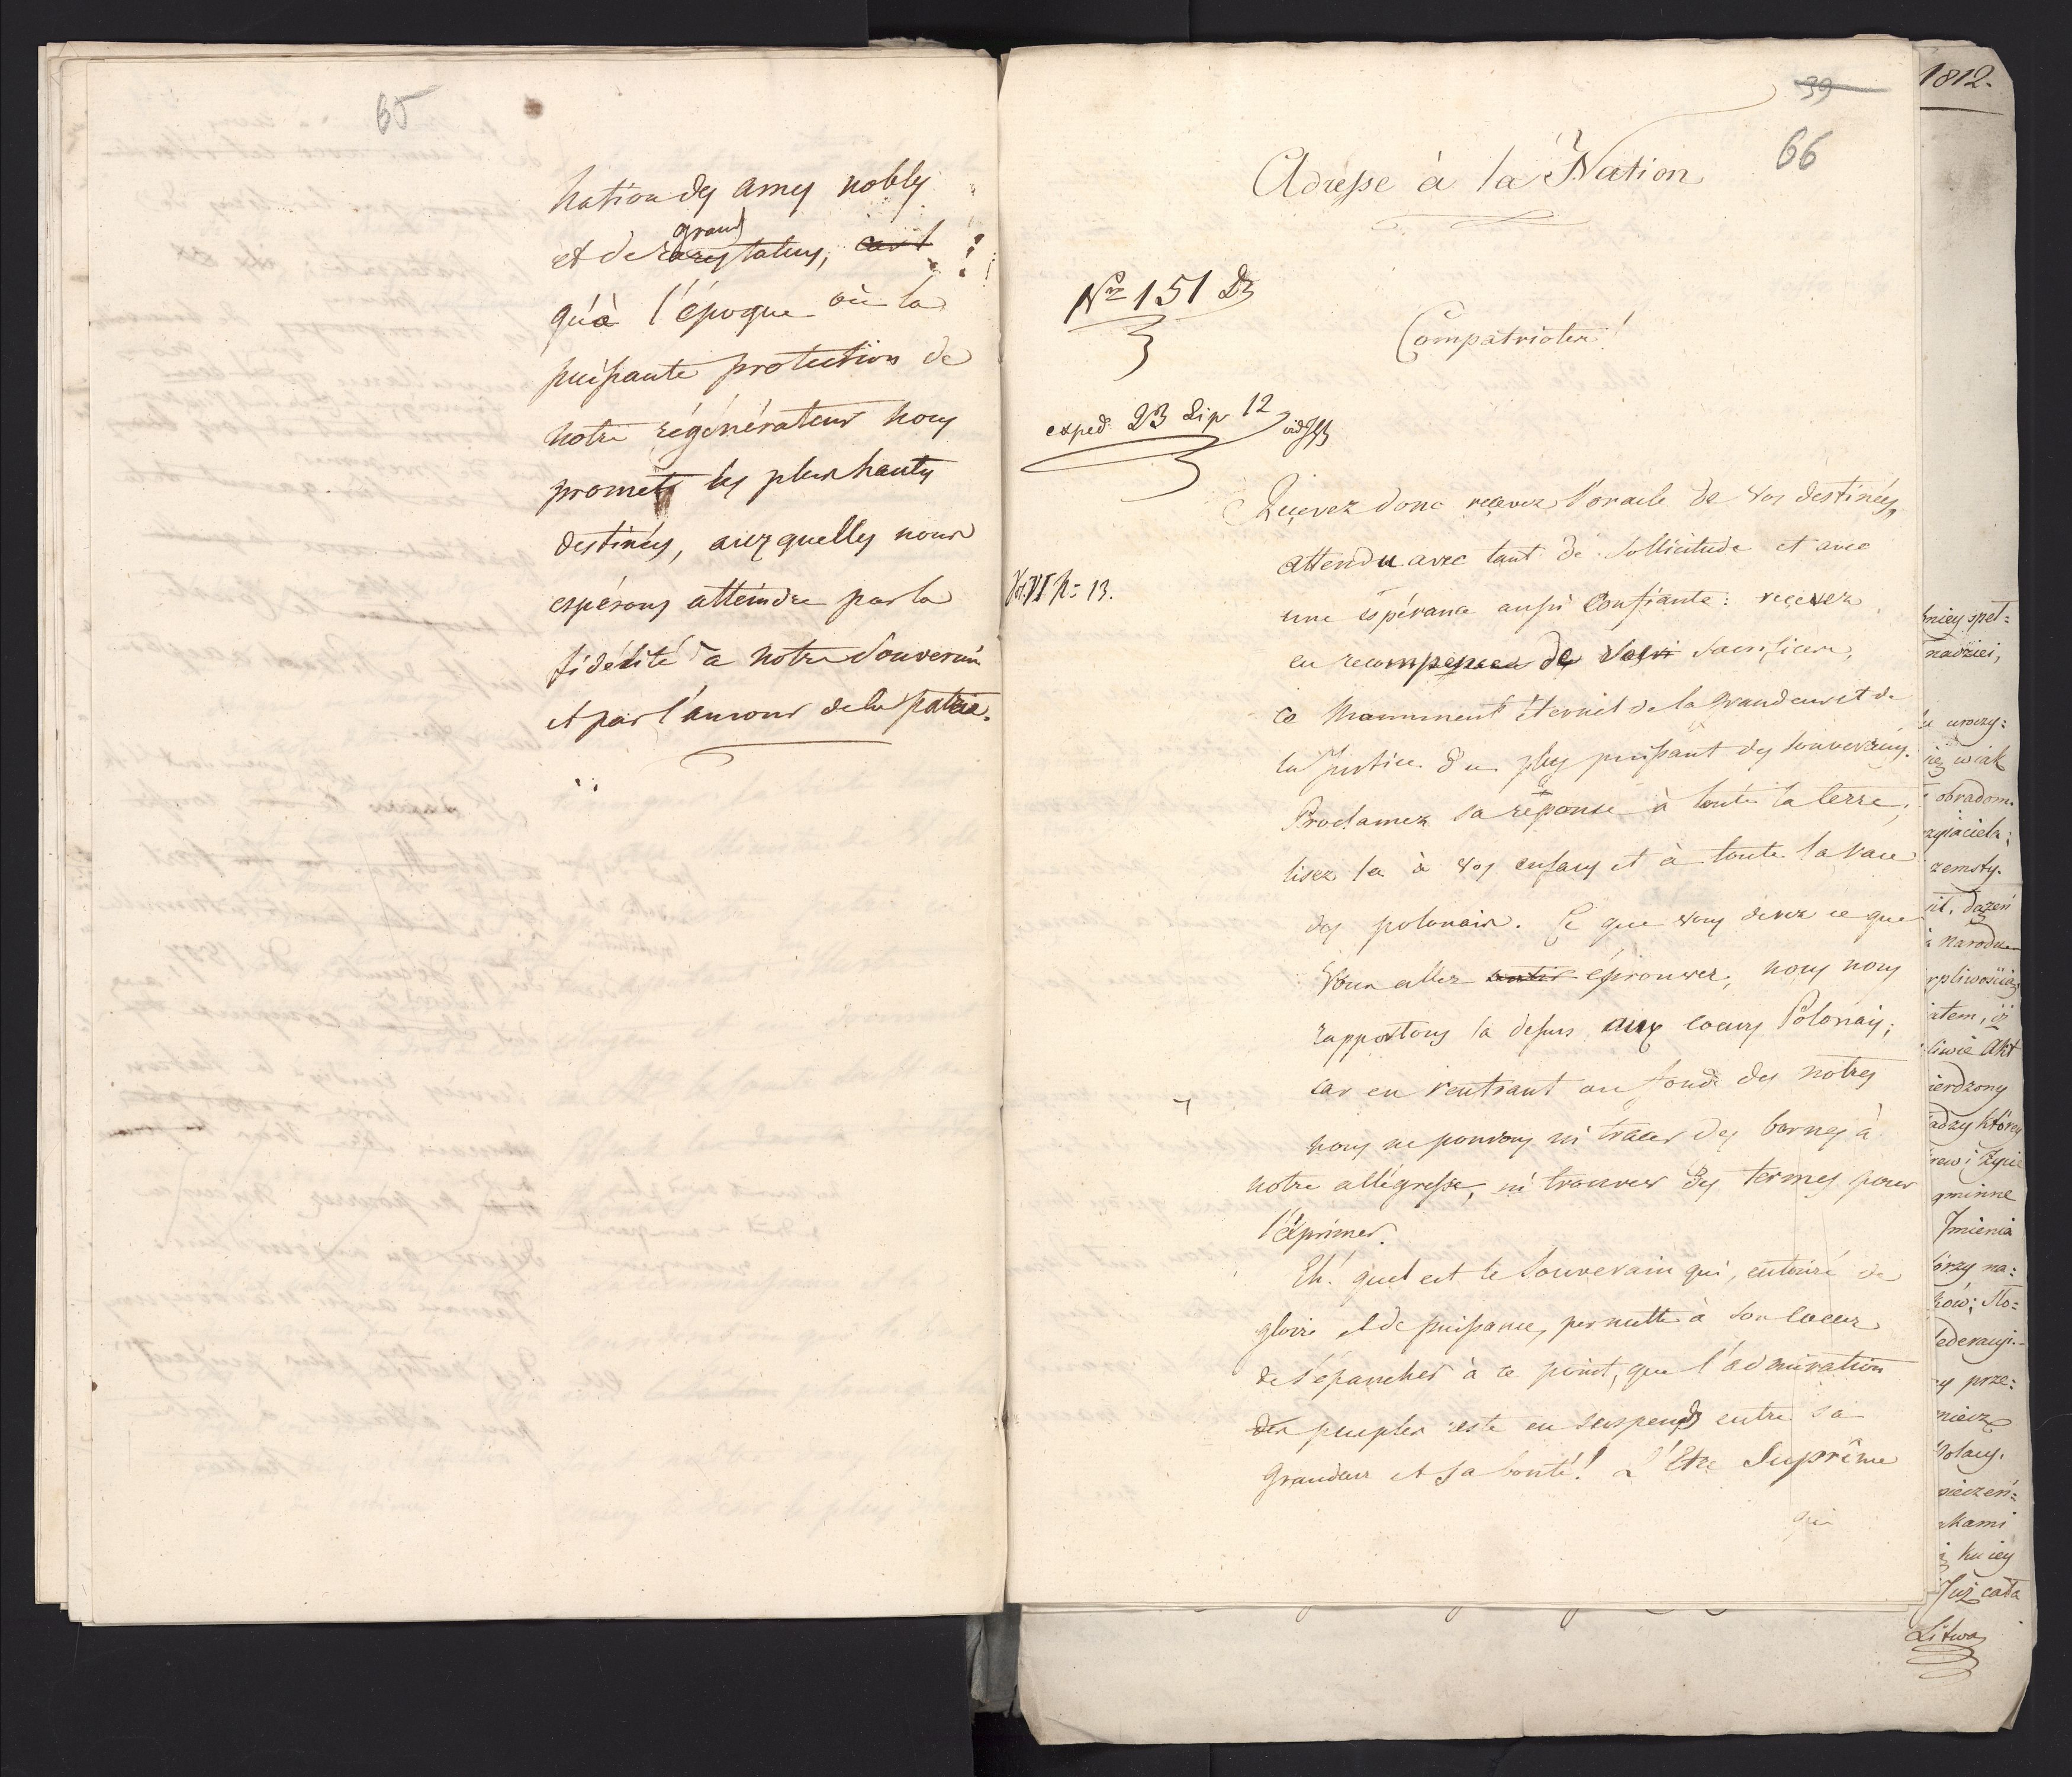 65
Nation des ames nobles
grands
et de rares talens, cest
qu'à l'époque où la
puissante protection de
notre régénérateur nous
promet les plus hautes
destinées, auxquelles nous
espérons atteindre par la
fidélité a notre Souverain
et par l'amour de la patrie.
39
66
Adresse à la Nation
Nro 151 Dz
Compatriotes!
exped. 23 Lip. 12
Vol. VI N: 13.
Reçevez donc reçevez l'oracle de vos destinées,
attendu avec tant de sollicitude et avec
une espérance aussi confiante: reçevez
en recompense de vos sacrifices,
ce Monument éternel de la grandeur et de
la Justice du plus puissant des souverains.
Proclamez sa réponse à toute la terre,
lisez la à vos enfans et à toute la race
des polonais. Ce que vous devez ce que
Vous allez sentir éprouver, nous nous
rapportons la dessus aux coeurs Polonais;
car en rentrant au fond des notres
nous ne pouvons ni tracer des bornes à
notre allégresse, ni trouver des termes pour
l'exprimer.
Eh! quel est le Souverain qui, entouré de
gloire et de puissance, permette à son coeur
de s'épancher à ce point, que l'admiration
des peuples reste en suspends entre sa
grandeur et sa bonté! L'Etre Suprême
qui
1812.
spel=
nadziei,
uroczy=
wiak
obradom.
zemsty.
dązeń
Narodu
atem, iż
Akt
ierdzony
którey
życie
gminne
Jmienia
órzy na=
ków; Sto=
prze=
kami
ku iey
Już cała
Litwa